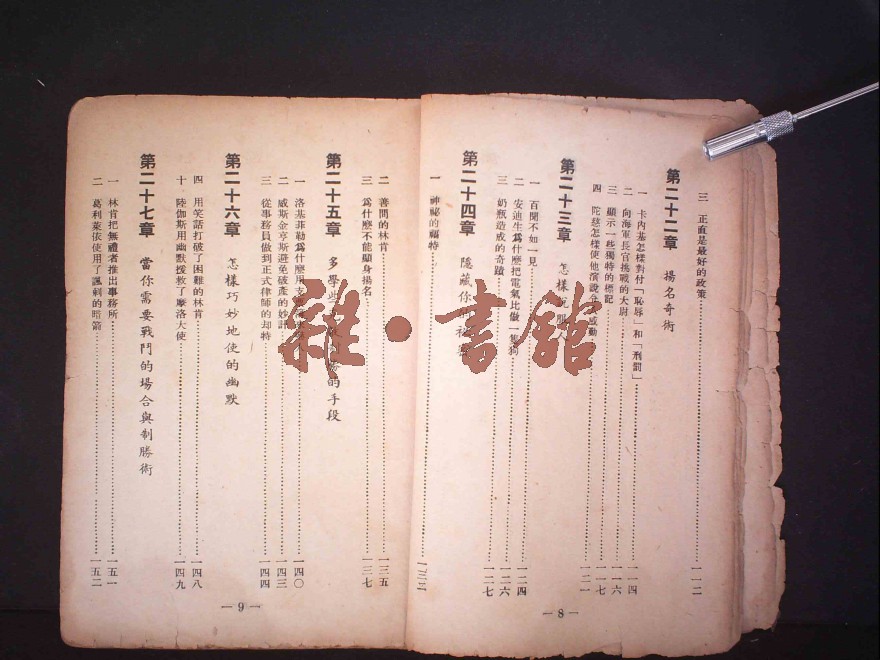 三　正直是最好的政策……一一二
第二十二章　揚名奇術
一　卡內基怎樣對付「恥辱」和「刑罰」……一一四
二　向海軍長官挑戰的大尉……一一六
三　顯示一些獨特的標記……一一七
四　陀慈怎樣使他演說……感動……一二一
第二十三章　怎樣
一　百聞不如一見……一二四
二　安迪生爲什麼把電氣比做一隻狗……一二六
三　奶瓶造成的奇蹟……一二七
第二十四章　隱藏你
一　神祕的
—8—
二　善問的林肯……一三五
三　爲什麼不能顯身揚名……一三七
第二十五章　多學些　的手段
一　洛基菲勒爲什麼用支……一四〇
二　威斯金亨斯避免破產的妙計……一四三
三　從事務員做到正式律師的却特……一四四
第二十六章　怎樣巧妙地使的幽默
四　用笑話打破了困難的林肯……一四八
十　陸伽斯用幽默援救了摩洛大使……一四九
第二十七章　當你需要戰鬥的場合與制勝術
一　林肯把無禮者推出事務所……一五一
二　葛利萊依使用了諷刺的暗箭……一五二
—9—
雜·書館